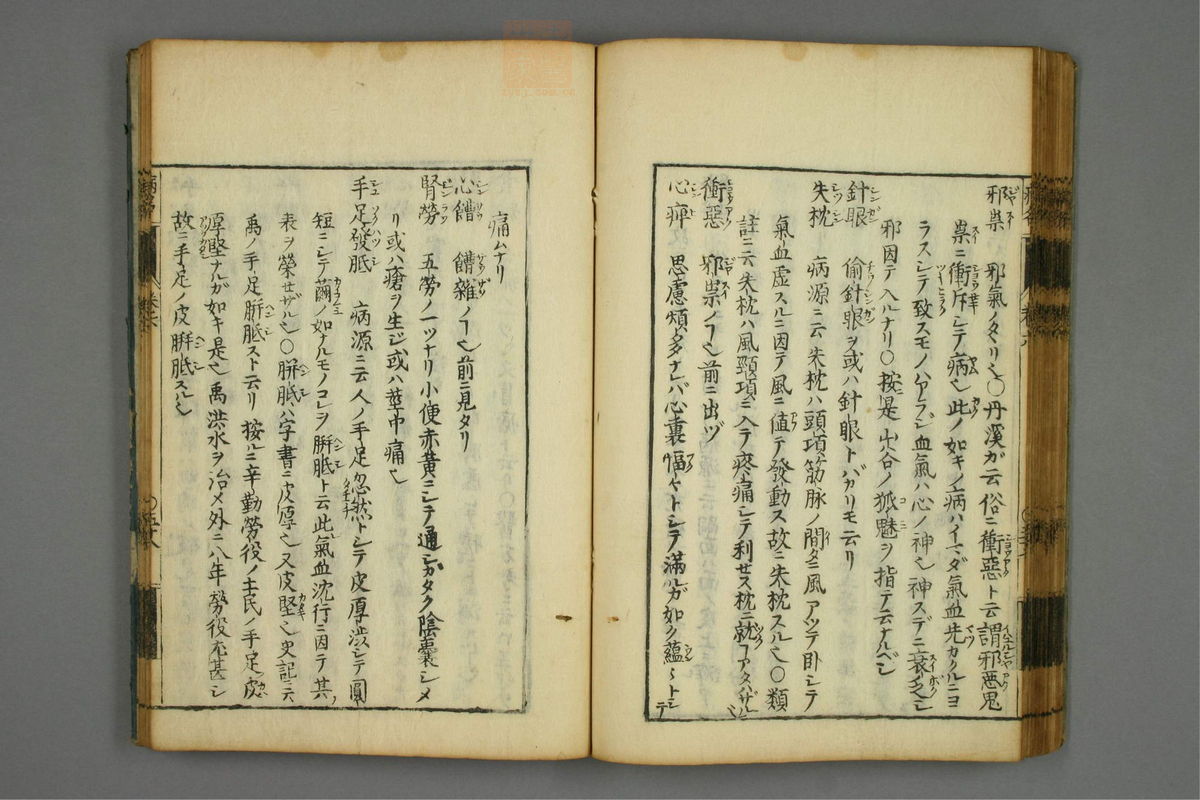 邪祟 邪氣ノタヽリ也〇丹溪ガ云俗ニ衝惡ト云謂邪惡鬼
祟ニ衝斥シテ病也此ノ如キノ病ハイマダ氣血先カクルニヨ
ラスシテ致スモノハアラズ血氣ハ心ノ神也神スデニ衰乏シ
邪因テ入ルナリ〇按是山谷ノ狐魅ヲ指テ云ナルベシ
針眼 偷針眼ヲ或ハ針眼トバカリモ云リ
失枕 病源ニ云失枕ハ頭項筋脉ノ間タニ風アツテ卧シテ
氣血虚スルニ因テ風ニ値テ發動ス故ニ失枕スル也〇類
註ニ云失枕ハ風頸項ニ入テ疼痛シテ利せス枕ニ就コアタハザル也
衝惡 邪祟ノコ也前ニ出ヅ
心痺 思慮煩多ナレバ心裏愊々トシテ滿ルガ如ク蘊々トシテ
痛ムナリ
心饐 饐雜ノコ也前ニ見タリ
腎勞 五勞ノ一ツナリ小便赤黄ニシテ通シガタク陰囊シメ
リ或ハ瘡ヲ生ジ或ハ莖中痛也
手足發胝 病源ニ云人ノ手足忽然トシテ皮厚澁シテ圓
短ニシテ繭ノ如ナルモノコレヲ胼胝ト云此氣血沈行ニ因テ其
表ヲ榮せザル也〇胼胝ハ字書ニ皮厚也又皮堅也史記ニ云
禹ノ手足胼胝スト云リ按ルニ辛勤勞役ノ土民ノ手足皮
厚堅ナルガ如キ是也禹洪水ヲ治メ外ニ八年勞役尤甚シ
故ニ手足ノ皮胼胝スル也